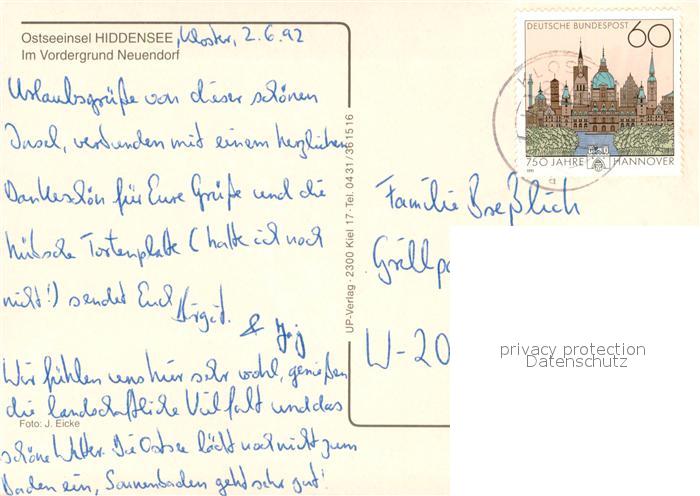 Ostseeinsel HIDDENSEE, Kloster, 2.6.92
Im Vordergrund Neuendorf
Urlaubsgrüße von dieser schönen
Insel, verbunden mit einem herzlichen
Dankeschön für Eure Grüße und die
hübsche Tortenplatte (hatte ich noch
nicht!) sendet Euch Birgit.
&
Wir fühlen uns hier sehr wohl, genießen
die landschaftliche Vielfalt und das
Foto: J. Eicke
schöne Wetter. Die Ostsee lädt noch nicht zum
Baden ein, Sonnenbaden geht sehr gut!
UP-Verlag · 2300 Kiel 17 · Tel. 0431/361516
DEUTSCHE BUNDESPOST 60
750 JAHRE HANNOVER
1991
Familie Breßlich
W-20
privacy protection
Datenschutz